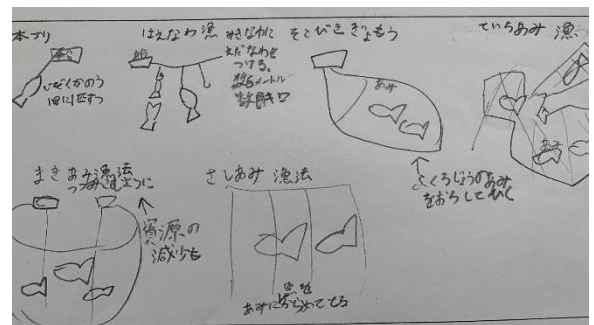 本づり
船
1回に1匹ずつ
はえなわ漁
船
みきなわに
えだなわを
つける。
数百メートル〜
そこびきぎょもう
あみ
ふくろじょうのあみ
をおろしてひく
ていちあみ 漁
あみ
まきあみ漁法
つつみこむように
資源の
減少も
さしあみ 漁法
あみに